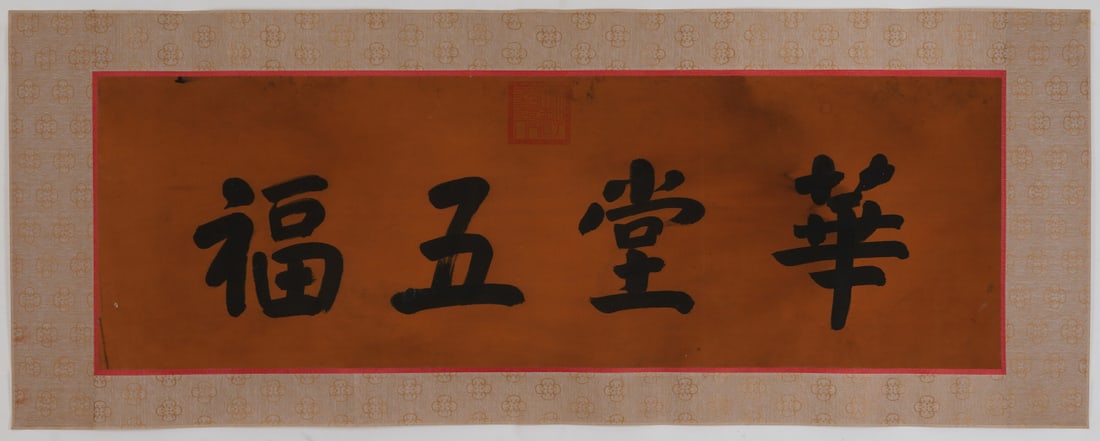 華堂五福